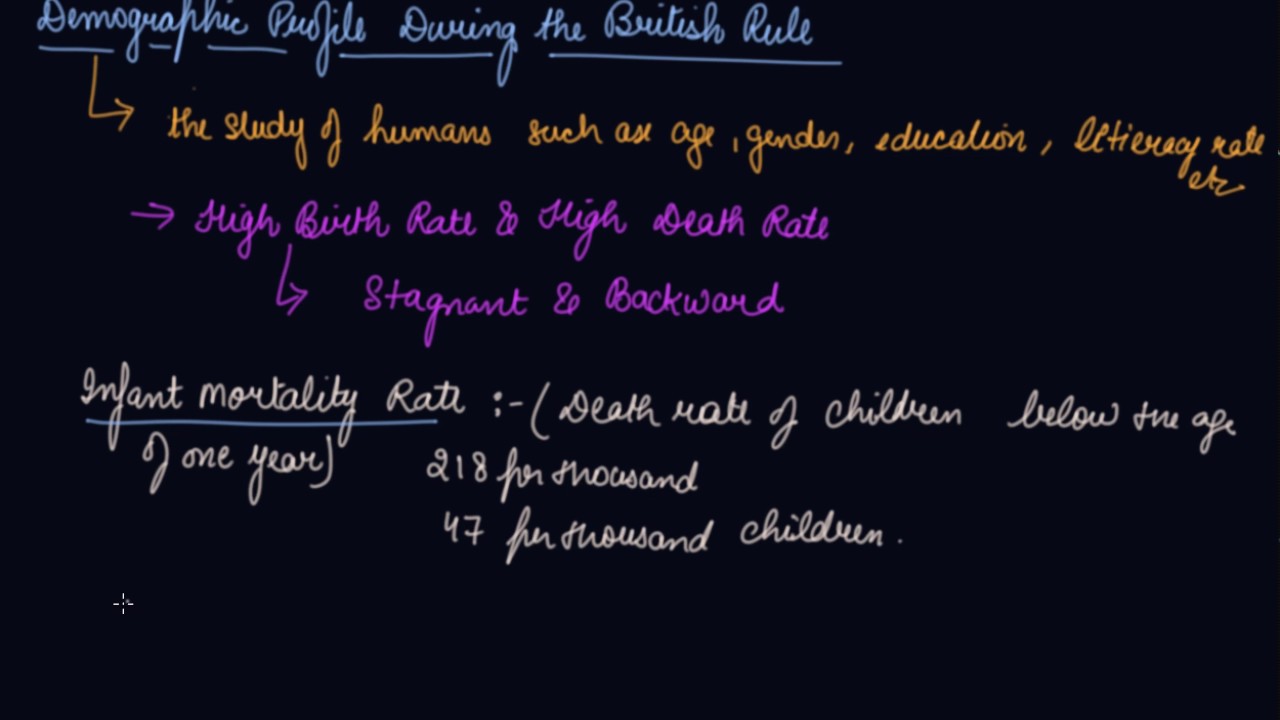 Demographic Profile During the British Rule
the study of humans such as age, gender, education, litieracy rate
etc
→ High Birth Rate & High Death Rate
Stagnant & Backward
Infant mortality Rate :- (Death rate of children below the age
of one year) 218 per thousand
47 per thousand children.